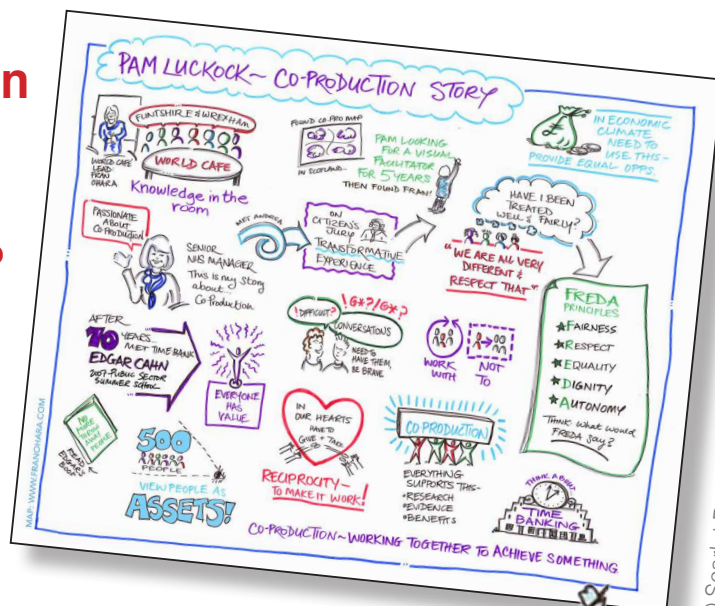 n
PAM LUCKOCK~ CO-PRODUCTION STORY
FLINTSHIRE & WREXHAM
WORLD CAFE
WORLD CAFE
LEAD
FRAN
OHARA
Knowledge in the
room
FOUND CO-PRO MAP
IN SCOTLAND~
PAM LOOKING
FOR A VISUAL
FACILITATOR
FOR 5 YEARS
THEN FOUND FRAN!
£
IN ECONOMIC
CLIMATE
NEED TO
USE THIS~
PROVIDE EQUAL OPPS.
PASSIONATE
ABOUT
CO-PRODUCTION
SENIOR
NHS MANAGER
This is my story
about
Co-Production
MET ANDREA
ON
CITIZEN'S
JURY
TRANSFORMATIVE
EXPERIENCE
HAVE I BEEN
TREATED
WELL & FAIRLY?
"WE ARE ALL VERY
DIFFERENT &
RESPECT THAT"
FREDA
PRINCIPLES
FAIRNESS
RESPECT
EQUALITY
DIGNITY
AUTONOMY
Think what would
FREDA say?
AFTER
10 YEARS...
MET TIME BANK
EDGAR CAHN
2007-PUBLIC SECTOR
SUMMER SCHOOL
EVERYONE
HAS
VALUE
!DIFFICULT?
!G*?/G*?
CONVERSATIONS
NEED TO
HAVE THEM,
BE BRAVE
WORK
WITH
NOT
TO
NO
MORE
THROW
AWAY
PEOPLE
READ
EDGAR'S
BOOK
500
PEOPLE
VIEW PEOPLE AS
ASSETS!
IN
OUR HEARTS
HAVE TO
GIVE + TAKE
RECIPROCITY~
TO MAKE IT WORK!
CO-PRODUCTION
EVERYTHING
SUPPORTS THIS~
*RESEARCH
*EVIDENCE
*BENEFITS
THINK ABOUT
TIME
BANKING
CO-PRODUCTION~WORKING TOGETHER TO ACHIEVE SOMETHING
MAP: WWW.FRANOHARA.COM